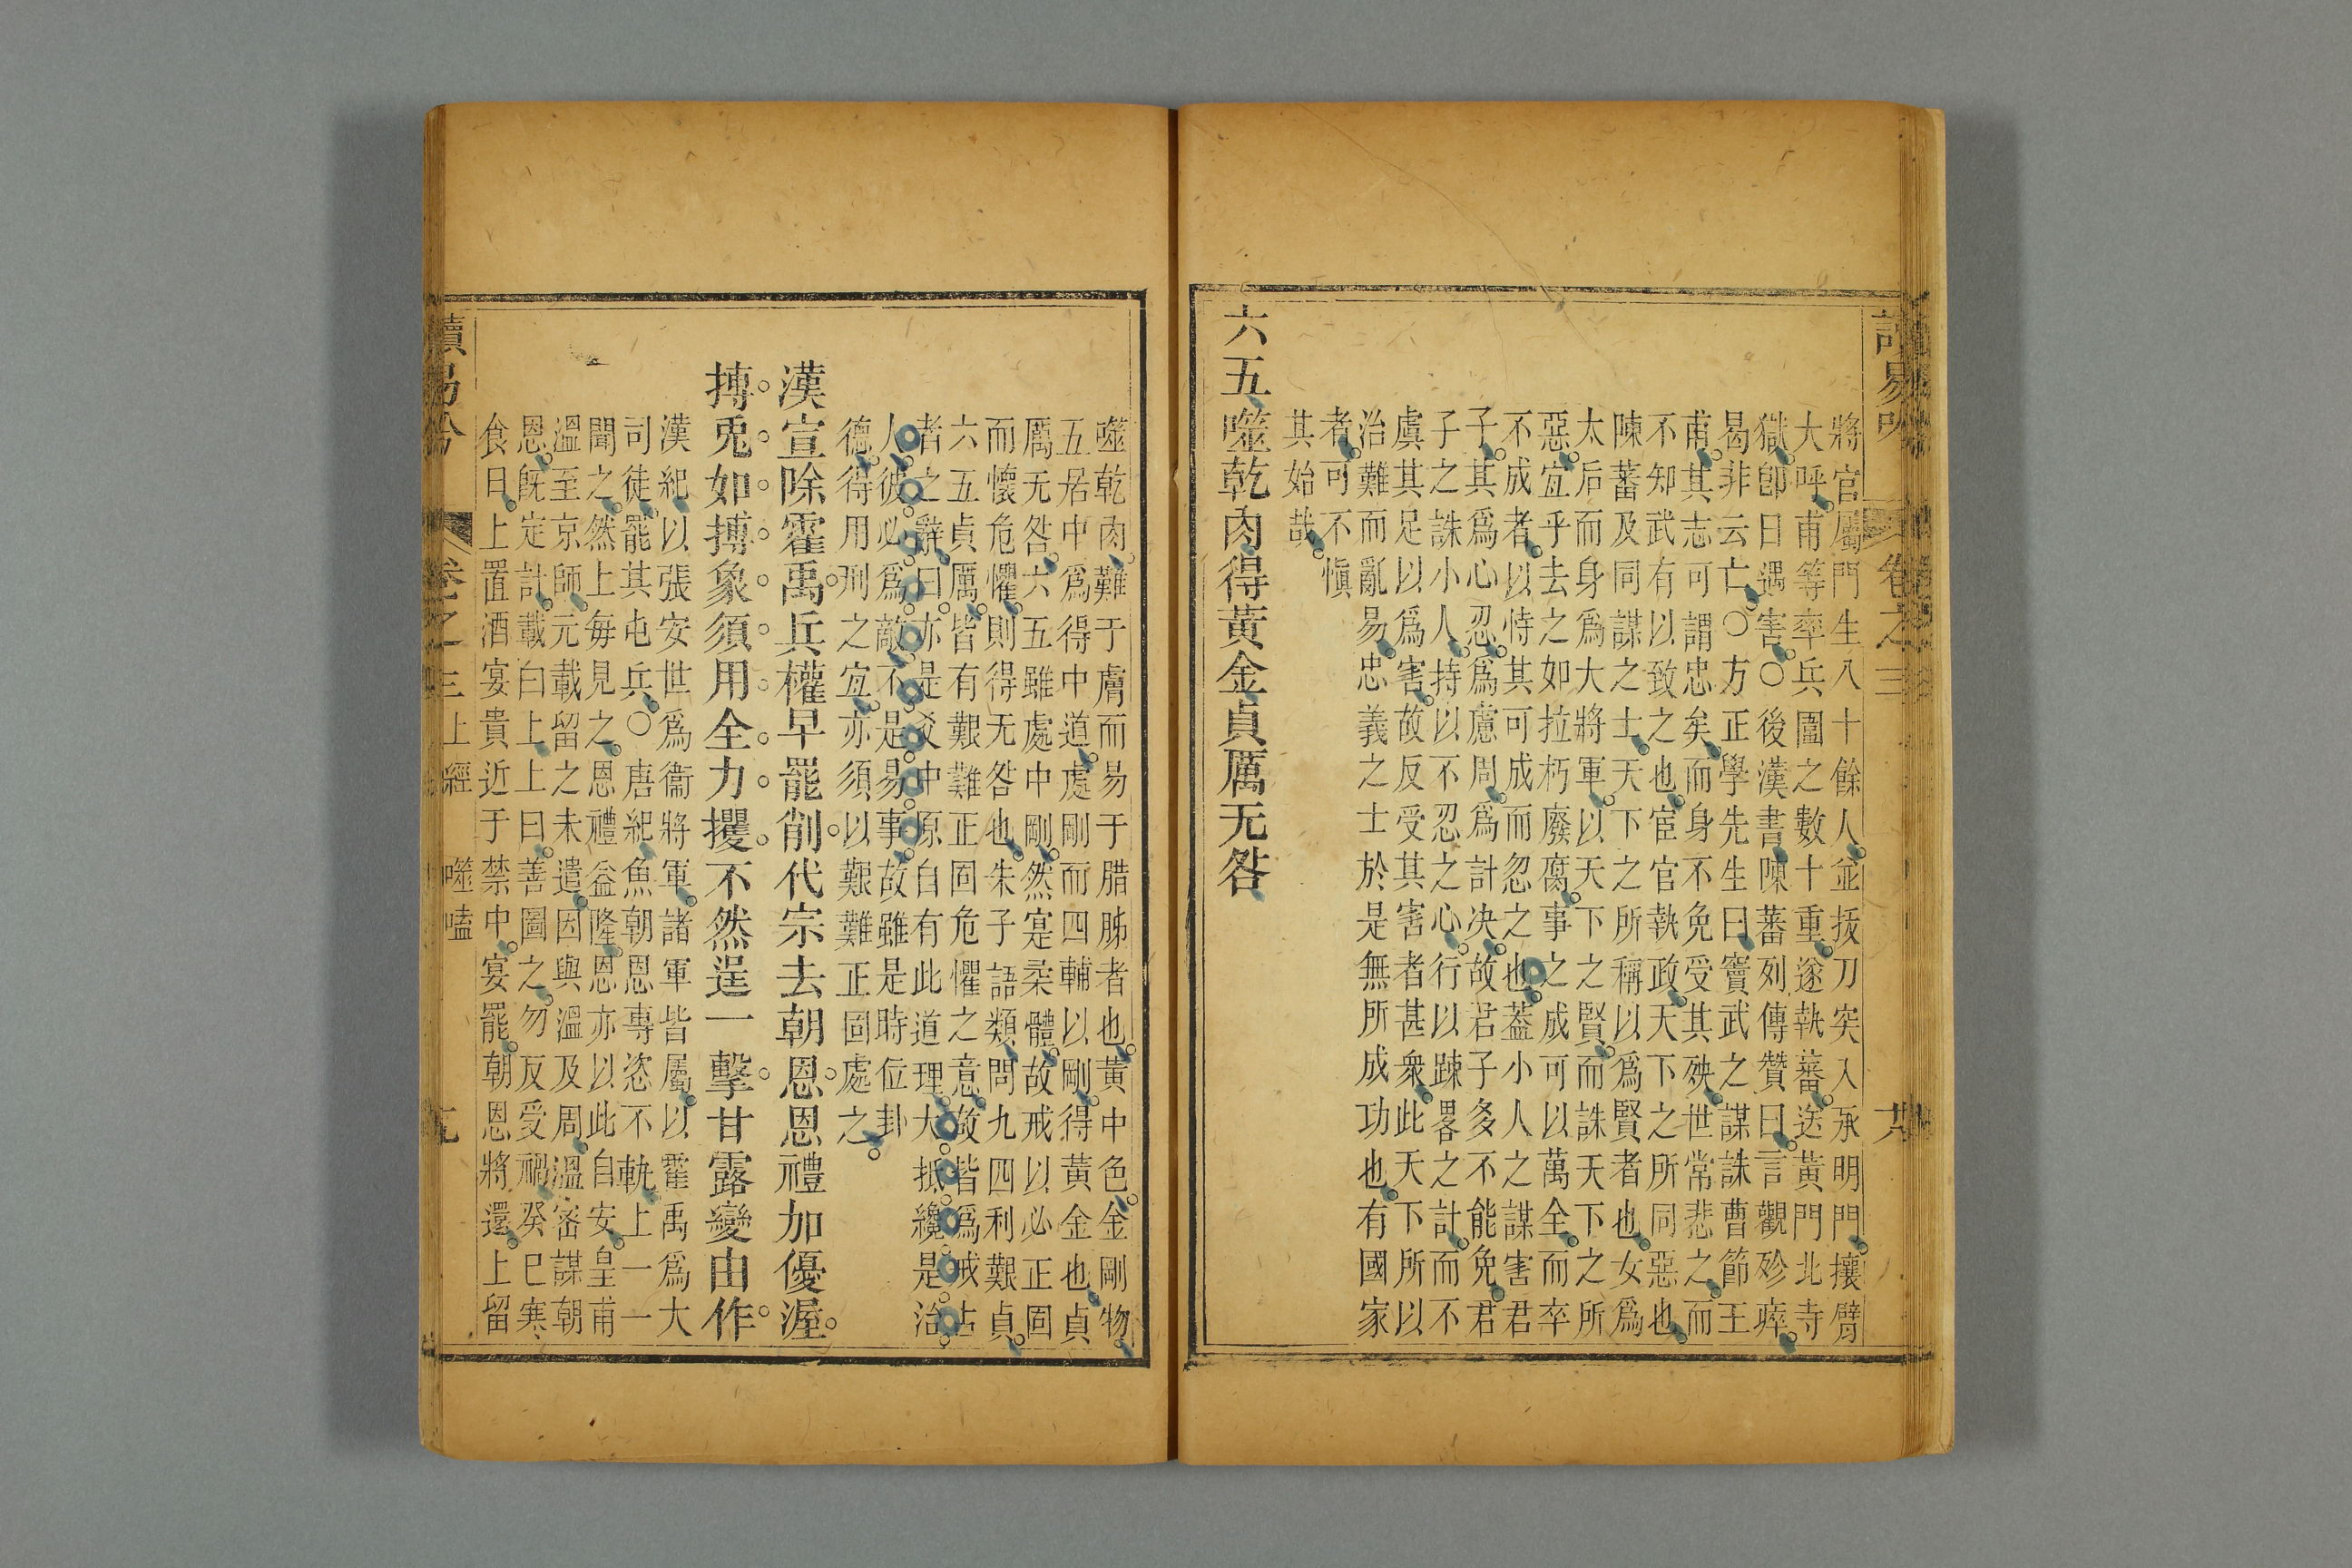 將官屬門生八十餘人並拔刀突入承明門攘臂
大呼甫等率兵圍之數十重遂執蕃送黃門北寺
獄卽日遇害○後漢書陳蕃列傳贊曰言觀殄瘁
曷非云亡○方正學先生曰竇武之謀誅曹節王
甫其志可謂忠矣而身不免受其殃世常悲之而
不知武有以致之也宦官執政天下之所同惡也
陳蕃及同謀之士天下之所稱以爲賢者也女爲
太后而身爲大將軍以天下之賢而誅天下之所
惡宐乎去之如拉朽廢腐事之成可以萬全而卒
不成者以恃其可成而忽之也葢小人之謀害君
子其爲心忍爲慮周爲計決故君子多不能免君
子之誅小人持以不忍之心行以踈畧之計而不
虞其足以爲害故反受其害者甚衆此天下所以
治難而亂易忠義之士於是無所成功也有國家
者可不愼
其始哉
六五噬乾肉得黃金貞厲无咎
讀易 卷之三
噬乾肉難于膚而易于腊胏者也黃中色金剛物
五居中爲得中道處剛而四輔以剛得黃金也貞
厲无咎六五雖處中剛然寔柔體故戒以必正固
而懷危懼則得无咎也朱子語類問九四利艱貞
六五貞厲皆有艱難正固危懼之意故皆爲戒占
者之辭曰亦是爻中原自有此道理大抵纔是治
人彼必爲敵不是易事故雖是時位卦
德得用刑之宐亦須以艱難正固處之
漢宣除霍禹兵權早罷削代宗去朝恩恩禮加優渥
搏兎如搏象須用全力攫不然逞一擊甘露變由作
漢紀以張安世爲衞將軍諸軍皆屬以霍禹爲大
司徒罷其屯兵○唐紀魚朝恩專恣不軌上一一
聞之然上每見之恩禮益隆恩亦以此自安皇甫
溫至京師元載留之未遣因與溫及周溫密謀朝
恩旣定計載曰上上曰善圖之勿反受禍癸巳寒
食日上置酒宴貴近于禁中宴罷朝恩將還上留
讀易 卷之三 上經 噬嗑